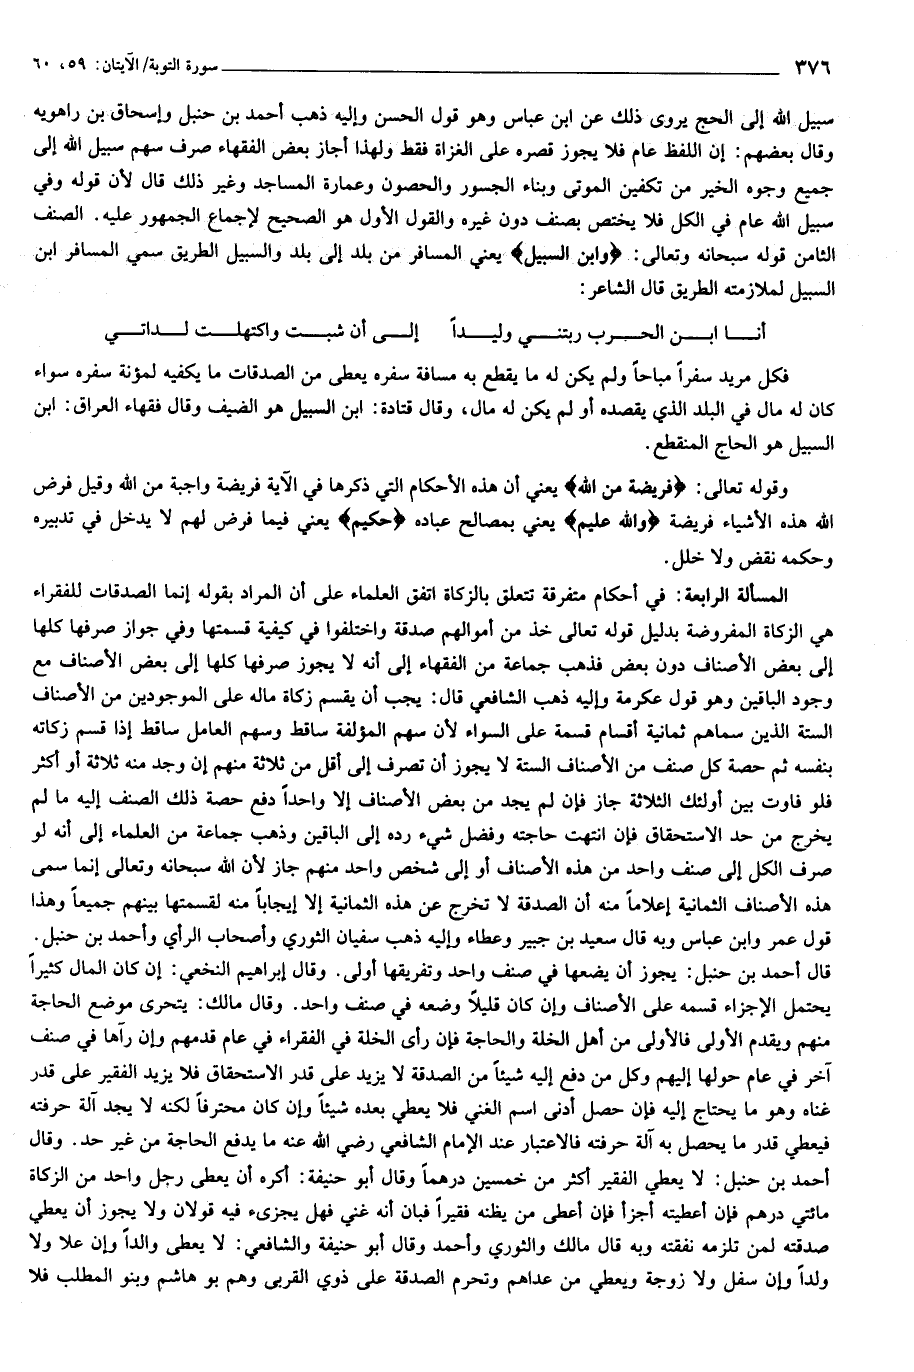 ٣٧٦ سورة التوبة/ الآيتان: ٥٩، ٦٠
سبيل الله إلى الحج يروى ذلك عن ابن عباس وهو قول الحسن وإليه ذهب أحمد بن حنبل وإسحاق بن راهويه
وقال بعضهم: إن اللفظ عام فلا يجوز قصره على الغزاة فقط ولهذا أجاز بعض الفقهاء صرف سهم سبيل الله إلى
جميع وجوه الخير من تكفين الموتى وبناء الجسور والحصون وعمارة المساجد وغير ذلك قال لأن قوله وفي
سبيل الله عام في الكل فلا يختص بصنف دون غيره والقول الأول هو الصحيح لإجماع الجمهور عليه. الصنف
الثامن قوله سبحانه وتعالى: ﴿وابن السبيل﴾ يعني المسافر من بلد إلى بلد والسبيل الطريق سمي المسافر ابن
السبيل لملازمته الطريق قال الشاعر:
أنا ابن الحرب ربتني وليداً إلى أن شبت واكتهلت لداتي
فكل مريد سفراً مباحاً ولم يكن له ما يقطع به مسافة سفره يعطى من الصدقات ما يكفيه لمؤنة سفره سواء
كان له مال في البلد الذي يقصده أو لم يكن له مال، وقال قتادة: ابن السبيل هو الضيف وقال فقهاء العراق: ابن
السبيل هو الحاج المنقطع.
وقوله تعالى: ﴿فريضة من الله﴾ يعني أن هذه الأحكام التي ذكرها في الآية فريضة واجبة من الله وقيل فرض
الله هذه الأشياء فريضة ﴿والله عليم﴾ يعني بمصالح عباده ﴿حكيم﴾ يعني فيما فرض لهم لا يدخل في تدبيره
وحكمه نقض ولا خلل.
المسألة الرابعة: في أحكام متفرقة تتعلق بالزكاة اتفق العلماء على أن المراد بقوله إنما الصدقات للفقراء
هي الزكاة المفروضة بدليل قوله تعالى خذ من أموالهم صدقة واختلفوا في كيفية قسمتها وفي جواز صرفها كلها
إلى بعض الأصناف دون بعض فذهب جماعة من الفقهاء إلى أنه لا يجوز صرفها كلها إلى بعض الأصناف مع
وجود الباقين وهو قول عكرمة وإليه ذهب الشافعي قال: يجب أن يقسم زكاة ماله على الموجودين من الأصناف
الستة الذين سماهم ثمانية أقسام قسمة على السواء لأن سهم المؤلفة ساقط وسهم العامل ساقط إذا قسم زكاته
بنفسه ثم حصة كل صنف من الأصناف الستة لا يجوز أن تصرف إلى أقل من ثلاثة منهم إن وجد منه ثلاثة أو أكثر
فلو فاوت بين أولئك الثلاثة جاز فإن لم يجد من بعض الأصناف إلا واحداً دفع حصة ذلك الصنف إليه ما لم
يخرج من حد الاستحقاق فإن انتهت حاجته وفضل شيء رده إلى الباقين وذهب جماعة من العلماء إلى أنه لو
صرف الكل إلى صنف واحد من هذه الأصناف أو إلى شخص واحد منهم جاز لأن الله سبحانه وتعالى إنما سمى
هذه الأصناف الثمانية إعلاماً منه أن الصدقة لا تخرج عن هذه الثمانية إلا إيجاباً منه لقسمتها بينهم جميعاً وهذا
قول عمر وابن عباس وبه قال سعيد بن جبير وعطاء وإليه ذهب سفيان الثوري وأصحاب الرأي وأحمد بن حنبل.
قال أحمد بن حنبل: يجوز أن يضعها في صنف واحد وتفريقها أولى. وقال إبراهيم النخعي: إن كان المال كثيراً
يحتمل الإجزاء قسمه على الأصناف وإن كان قليلاً وضعه في صنف واحد. وقال مالك: يتحرى موضع الحاجة
منهم ويقدم الأولى فالأولى من أهل الخلة والحاجة فإن رأى الخلة في الفقراء في عام قدمهم وإن رآها في صنف
آخر في عام حولها إليهم وكل من دفع إليه شيئاً من الصدقة لا يزيد على قدر الاستحقاق فلا يزيد الفقير على قدر
غناه وهو ما يحتاج إليه فإن حصل أدنى اسم الغني فلا يعطي بعده شيئاً وإن كان محترفاً لكنه لا يجد آلة حرفته
فيعطي قدر ما يحصل به آلة حرفته فالاعتبار عند الإمام الشافعي رضي الله عنه ما يدفع الحاجة من غير حد. وقال
أحمد بن حنبل: لا يعطي الفقير أكثر من خمسين درهماً وقال أبو حنيفة: أكره أن يعطى رجل واحد من الزكاة
مائتي درهم فإن أعطيته أجزأ فإن أعطى من يظنه فقيراً فبان أنه غني فهل يجزىء فيه قولان ولا يجوز أن يعطي
صدقته لمن تلزمه نفقته وبه قال مالك والثوري وأحمد وقال أبو حنيفة والشافعي: لا يعطى والداً وإن علا ولا
ولداً وإن سفل ولا زوجة ويعطي من عداهم وتحرم الصدقة على ذوي القربى وهم بو هاشم وبنو المطلب فلا